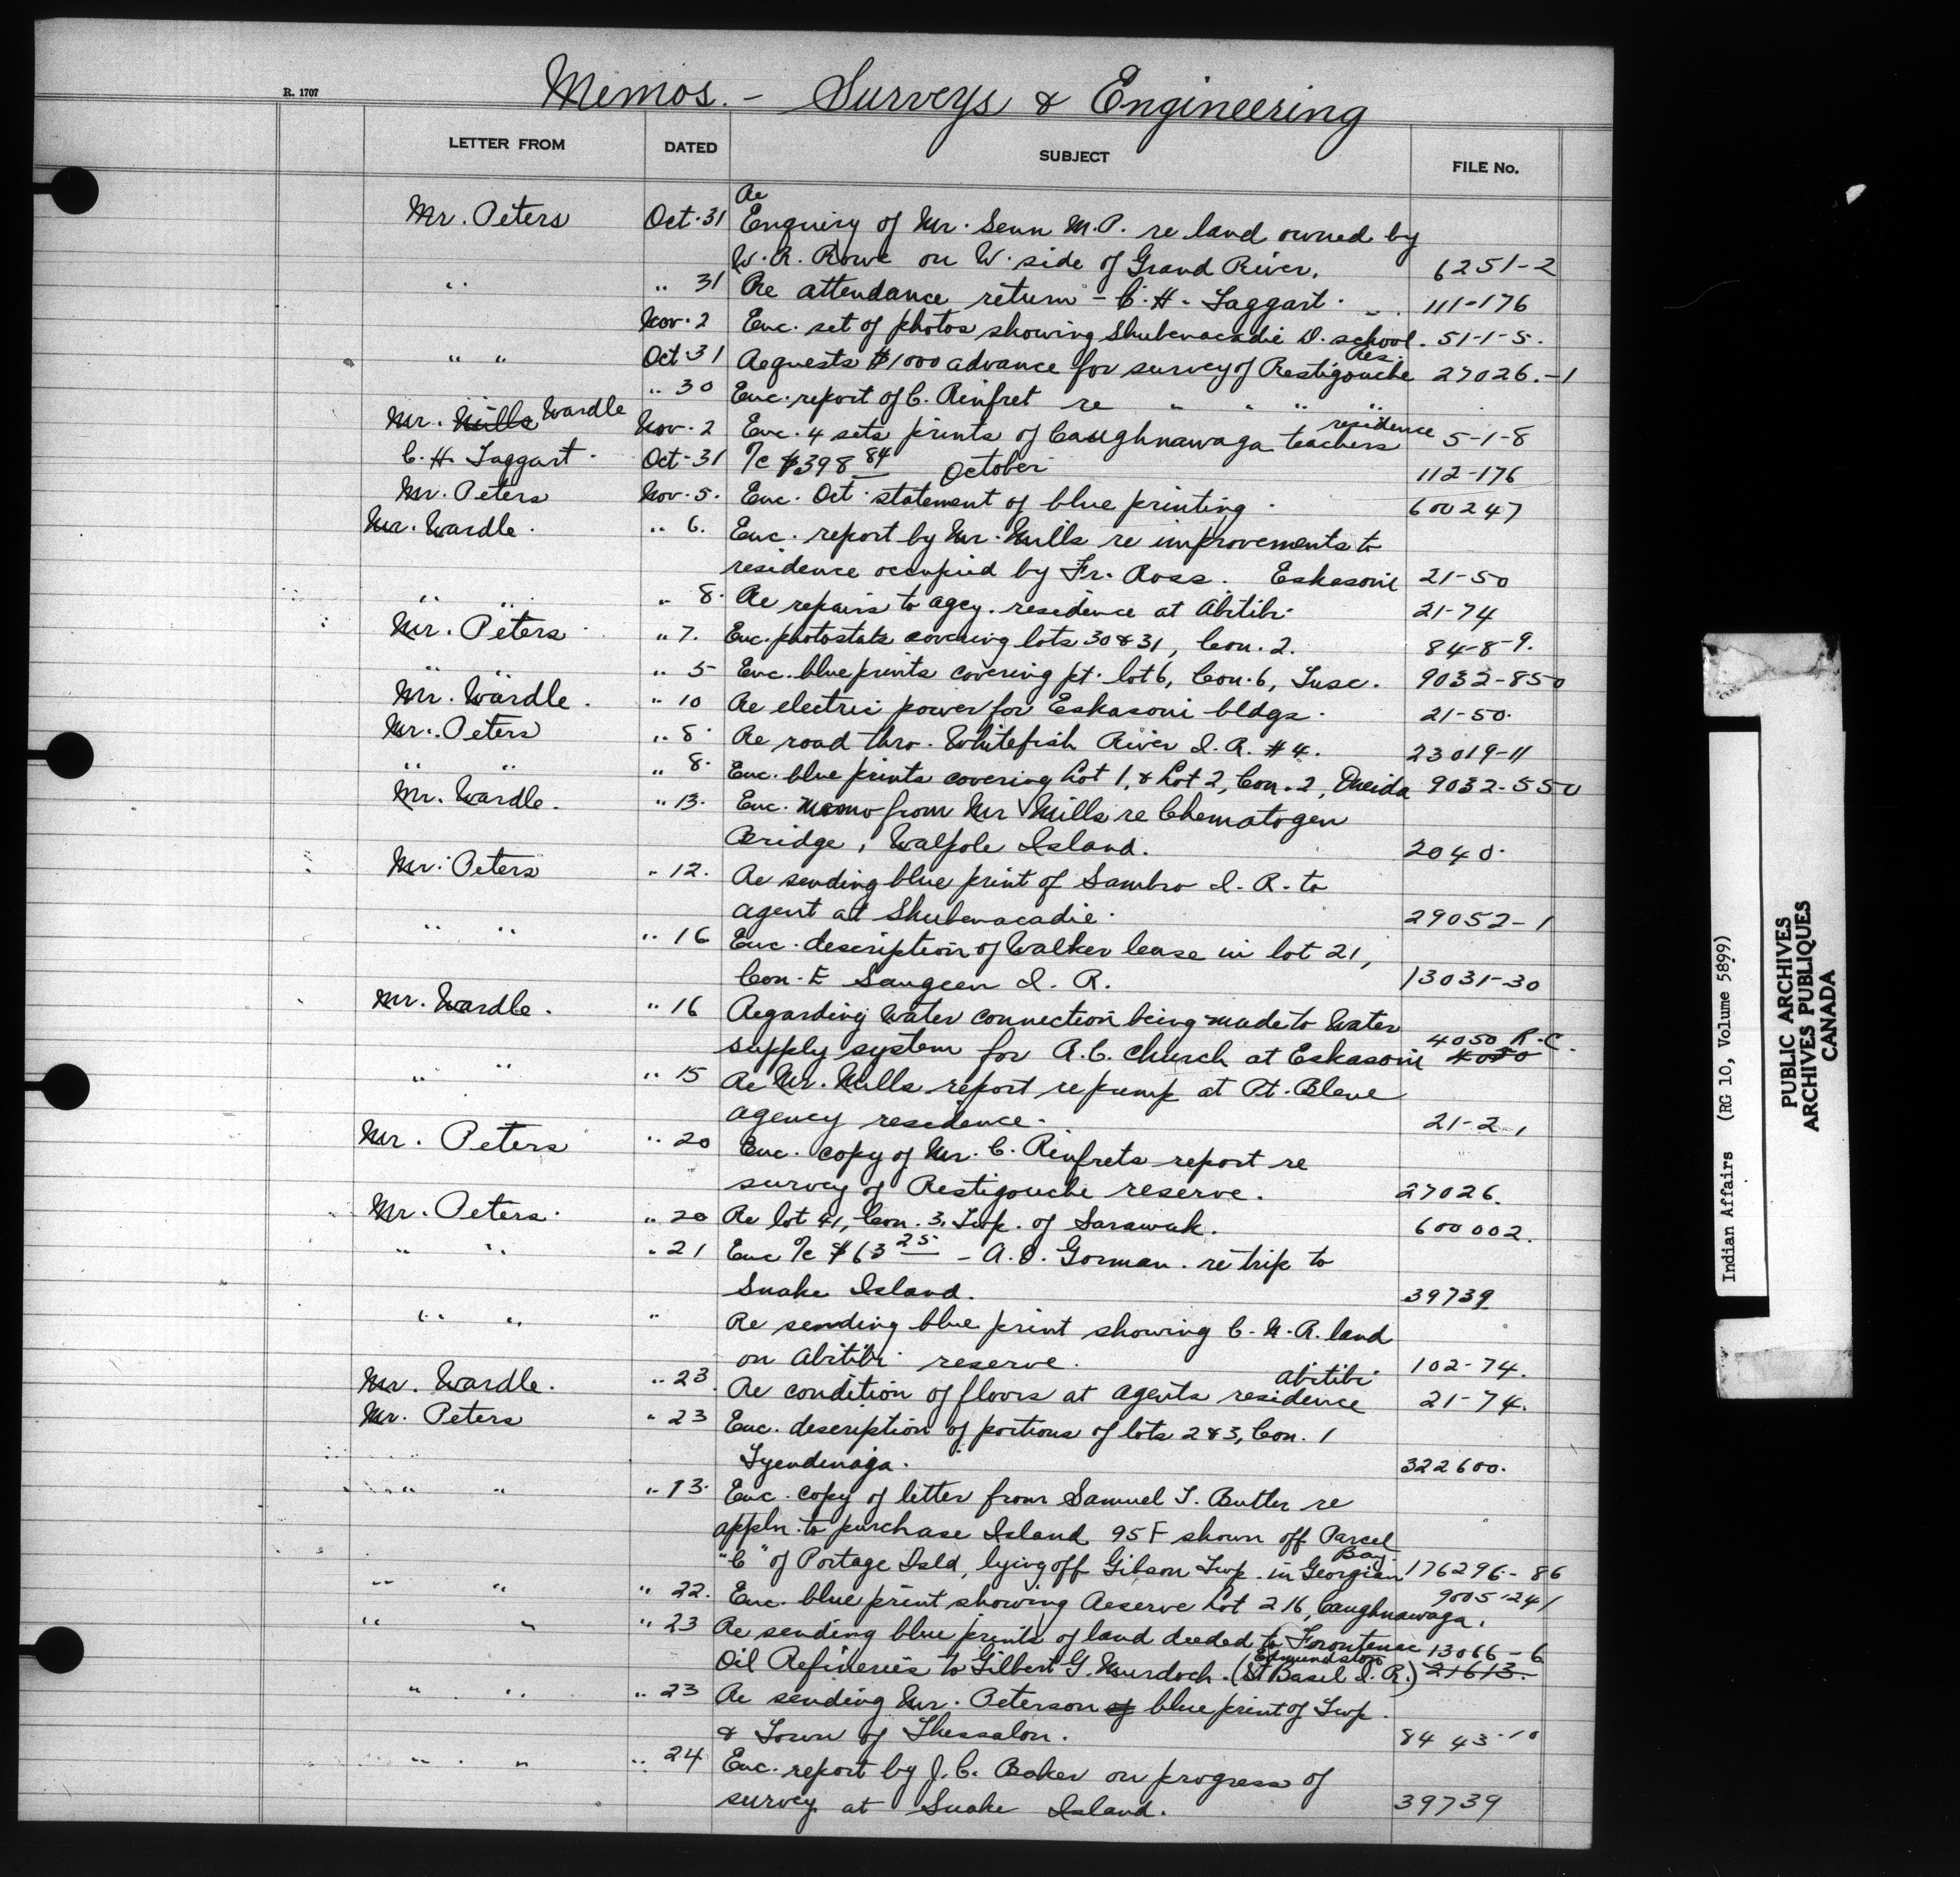 R. 1707
Memos. - Surveys & Engineering
LETTER FROM DATED SUBJECT FILE No.
Re
Mr. Peters Oct. 31 Enquiry of Mr. Senn M.P. re land owned by
W. R. Rowe on W. side of Grand River. 6251-2
" " 31 Re attendance return - C. H. Taggart. 111-176
Nov. 2 Enc. set of photos showing Shubenacadie I. school. 51-1-5.
" " Oct 31 Requests $1000 advance for survey of Restigouche Res. 27026.-1
" 30 Enc. report of C. Rinfret re " " " "
Mr. Mills Wardle Nov. 2 Enc. 4 sets prints of Caughnawaga teachers residence 5-1-8
C. H. Taggart. Oct-31 %c $398 84 October 112-176
Mr. Peters Nov. 5. Enc. Oct. statement of blue printing. 600247
Mr. Wardle. " 6. Enc. report by Mr. Mills re improvements to
residence occupied by Fr. Ross. Eskasoni 21-50
" " " 8. Re repairs to agcy. residence at Abitibi. 21-74
Mr. Peters " 7. Enc. photostats covering lots 30 & 31, Con. 2. 84-8-9.
" " " 5 Enc. blueprints covering pt. lot 6, Con. 6, Tusc. 9032-850
Mr. Wardle. " 10 Re electric power for Eskasoni bldgs. 21-50.
Mr. Peters " 8. Re road thro. Whitefish River I. R. #4. 23019-11
" " " 8. Enc. blue prints covering Lot 1, & Lot 2, Con. 2, Oneida 9032-550
Mr. Wardle. " 13. Enc. memo from Mr Mills re Chematogen
Bridge, Walpole Island. 2040.
Mr. Peters " 12. Re sending blue print of Sambro I. R. to
agent at Shubenacadie. 29052-1
" " " 16 Enc. description of Walker lease in lot 21,
Con. E Saugeen I. R. 13031-30
Mr. Wardle. " 16 Regarding water connection being made to water
supply system for R. C. church at Eskasoni 4050 R.C. 4050
" " " 15 Re Mr. Mills report re pump at Pt. Bleue
agency residence. 21-2-1
Mr. Peters " 20 Enc. copy of Mr. C. Rinfrets report re
survey of Restigouche reserve. 27026.
Mr. Peters. " 20 Re lot 41, Con. 3, Twp. of Sarawak. 600002.
" " " 21 Enc %c $63 25 - A. D. Gorman. re trip to
Snake Island. 39739
" " " Re sending blue print showing C. N. R. land
on Abitibi reserve. 102-74.
Mr. Wardle. " 23 Re condition of floors at agents residence Abitibi 21-74.
Mr. Peters " 23 Enc. description of portions of lots 2 & 3, Con. 1
Tyendinaga. 322600.
" " " 13. Enc. copy of letter from Samuel T. Butler re
appln. to purchase Island 95F shown off Parcel
"C" of Portage Isld, lying off Gibson Twp. in Georgian Bay. 176296-86
" " " 22. Enc. blue print showing Reserve Lot 216, Caughnawaga. 9005-241
" " " 23 Re sending blue prints of land deeded to Frontenac 13066-6
Oil Refineries to Gilbert G. Murdoch. (St Basil I. R.) Edmundston 21613.
" " " 23 Re sending Mr. Peterson of blue print of Twp.
& Town of Thessalon. 8443-10
" " " 24 Enc. report by J. C. Baker on progress of
survey at Snake Island. 39739
Indian Affairs (RG 10, Volume 5899)
PUBLIC ARCHIVES
ARCHIVES PUBLIQUES
CANADA